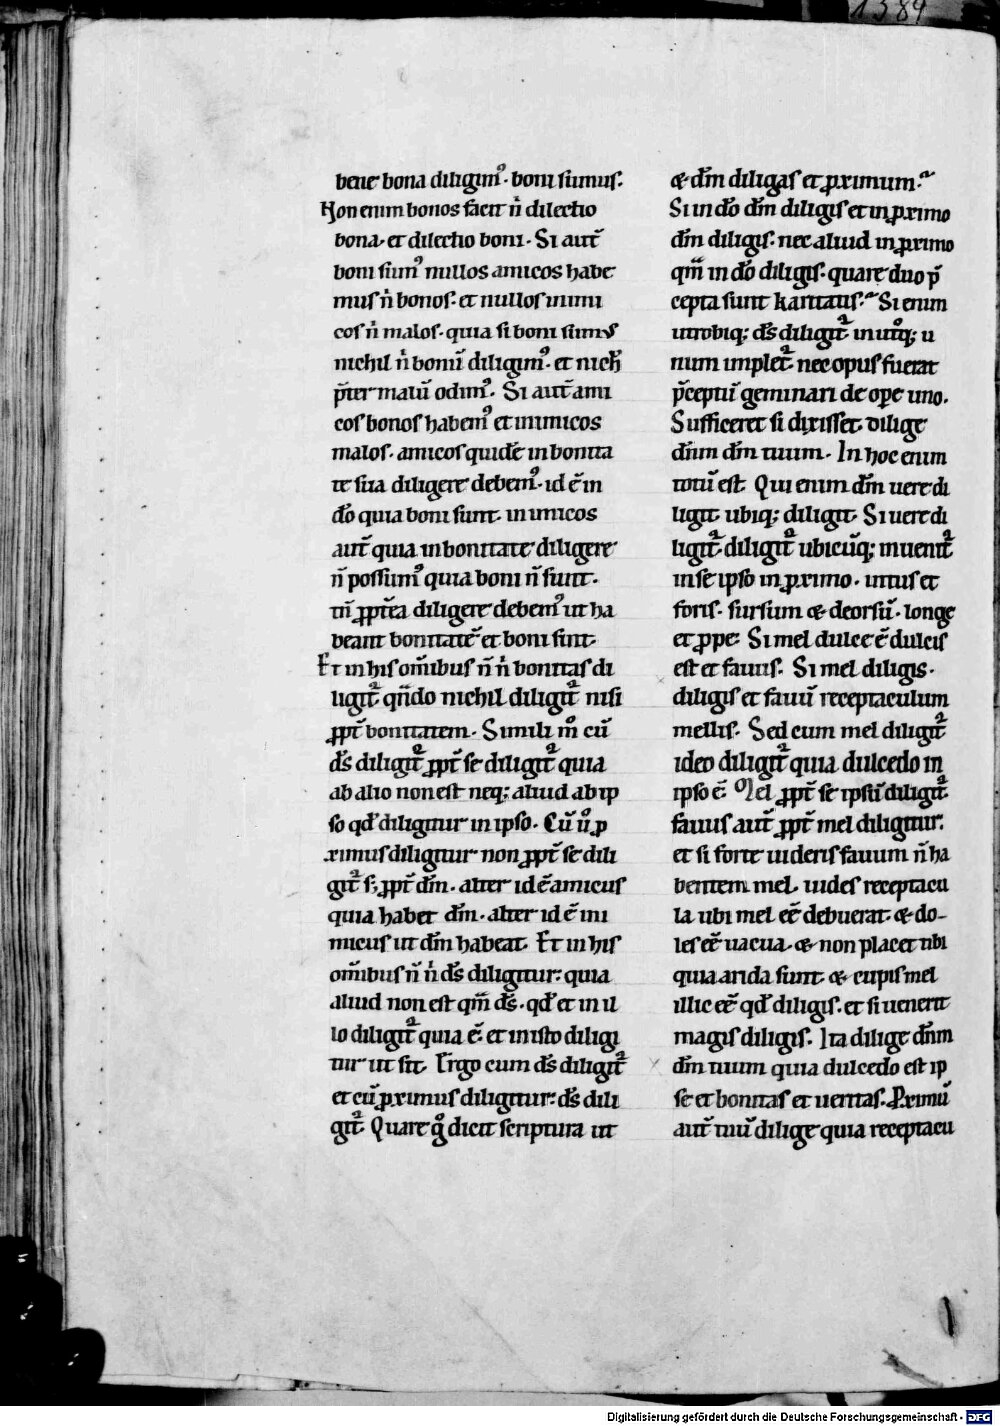 1389
bene bona diligim᷒. boni sumus.
Non enim bonos facit n̄ dilectio
bona. et dilectio boni. Si aut̄
boni sum᷒ nullos amicos habe
mus n̄ bonos. et nullos inimi
cos n̄ malos. quia si boni sumus
nichil n̄ bonū diligim᷒. et nich̄
p̄ter malū odim᷒. Si aut̄ ami
cos bonos habem᷒ et inimicos
malos. amicos quidē in bonita
te sua diligere debem᷒. id ē in
dō quia boni sunt. inimicos
aut̄ quia in bonitate diligere
n̄ possum᷒ quia boni n̄ sunt.
tn̄ ꝓpt̄ea diligere debem᷒ ut ha
beant bonitatē et boni sint.
Et in his om̄ibus n̄ n̄ bonitas di
ligit᷑. qn̄do nichil diligit᷑ nisi
ꝓpt̄ bonitatem. Simili m̊ cū
ds̄ diligit᷑ ꝓpt̄ se diligit᷑ quia
ab alio non est neq; aliud ab ip
so qd̄ diligitur in ipso. Cū ů ꝓ
ximus diligitur non ꝓpt̄ se dili
git᷑ s; ꝓpt̄ dm̄. alter id ē amicus
quia habet dm̄. alter id ē ini
micus ut dm̄ habeat. Et in his
om̄ibus n̄ n̄ ds̄ diligitur: quia
aliud non est qm̄ ds̄. qd̄ et in il
lo diligit᷑ quia ē. et in isto diligi
tur ut sit. Ergo cum ds̄ diligit᷑
et cū ꝓximus diligitur: ds̄ dili
git᷑. Quare g̊ dicit scriptura ut
& dm̄ diligas et ꝓximum?
Si in dō dm̄ diligis et in ꝓximo
dm̄ diligis. nec aliud in ꝓximo
qm̄ in dō diligis. quare duo p̄
cepta sunt karitatis? Si enim
utrobiq; ds̄ diligit᷑ in utͦq; u
num implet᷑. nec opus fuerat
p̄ceptū geminari de oꝑe uno.
Sufficeret si dixisset. dilige
dn̄m dm̄ tuum. In hoc enim
totū est. Qui enim dm̄ uere di
ligit. ubiq; diligit. Si uere di
ligit᷑. diligit᷑ ubicūq; inuenit᷑
in se ipso in ꝓximo. intus et
foris. sursum & deorsū. longe
et ꝓpe. Si mel dulce ē dulcis
est et fauus. Si mel diligis.
diligis et fauū receptaculum
mellis. Sed cum mel diligit᷑
ideo diligit᷑ quia dulcedo in
ipso ē. Mel ꝓpt̄ se ipsū diligit᷑.
fauus aut̄ ꝓpt̄ mel diligitur.
et si forte uideris fauum n̄ ha
bentem mel. uides receptacu
la ubi mel eē debuerat. & do-
les eē uacua. & non placet tibi
quia arida sunt. & cupis mel
illic eē qd̄ diligis. et si uenerit
magis diligis. Ita dilige dn̄m
dm̄ tuum quia dulcedo est ip
se et bonitas et ueritas. Proximū
aut̄ tuū dilige quia receptacu
Digitalisierung gefördert durch die Deutsche Forschungsgemeinschaft - DFG